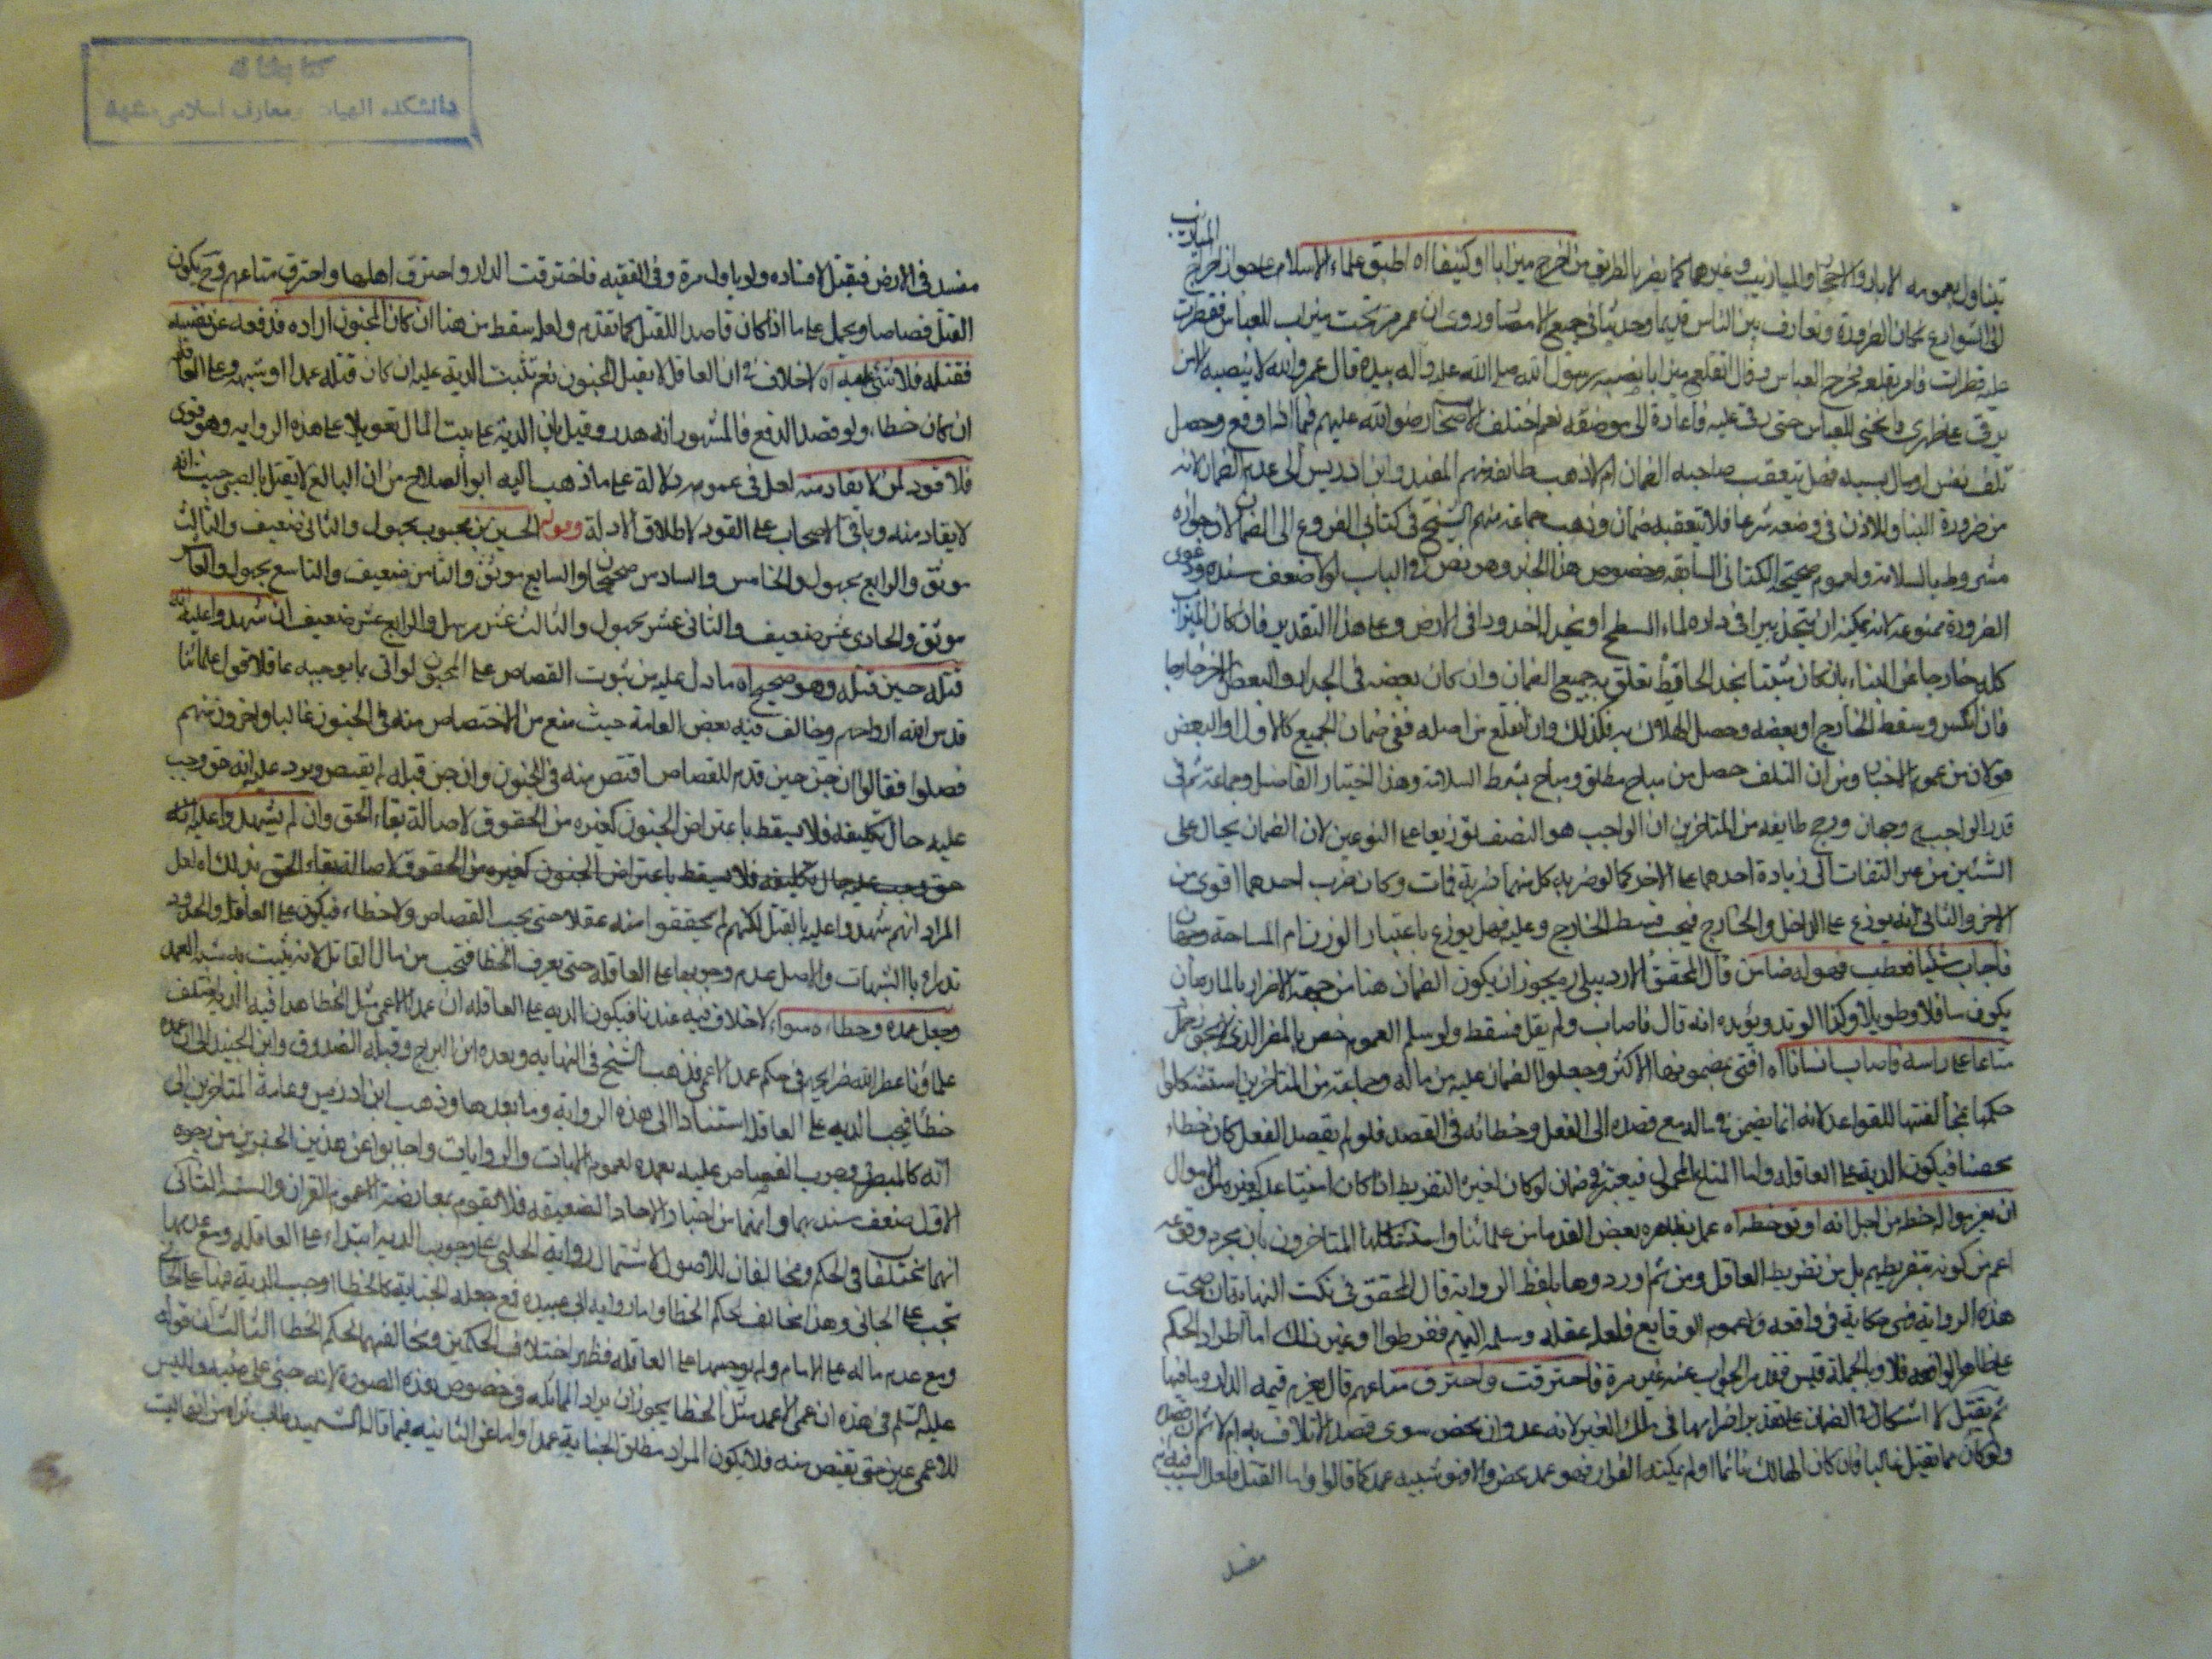 الميازيب
يتناول بعمومه الابار والاحجار والميازيب وغيرهما كما يضر بالطريق من اخرج ميزابا او كنيفا اه اطبق علماء الاسلام على جواز اخراج
الى الشوارع لمكان الضرورة وتعارف بين الناس قديما وحديثا في جميع الامصار وروى ان عمر مر تحت ميزاب للعباس فقطرت
عليه قطرات فامر بقلعه فخرج العباس وقال اتقلع ميزابا نصبه رسول الله صلى الله عليه وآله بيده قال عمر والله لا ينصبه الا من
يرقى على ظهري فانحنى للعباس حتى رقى عليه فاعاده الى موضعه نعم اختلف الاصحاب رضوا الله عليهم فيما اذا وقع وحصل
تلف نفس او مال بسببه فهل يتعقب صاحبه الضمان ام لا ذهب طائفة منهم المفيد وابن ادريس الى عدم الضمان لانه
من ضرورة البناء وللاذن في وضعه شرعا فلا يتعقبه ضمان وذهب جماعة منهم الشيخ في كتابي الفروع الى الضمان لان جوازه
مشروط بالسلامة ولعموم صحيحة الكناني السابقة وخصوص هذا الخبر وهو نص في الباب لولا ضعف سنده ودعوى
الضرورة ممنوعة لانه يمكنه ان يتخذ بيرا في داره لماء السطح او يتخذ اخدودا في الارض وعلى هذا التقدير فان كان الميزاب
كله خارجا عن البناء بان كان مثبتا بخد الحائط تعلق به جميع الضمان وان كان بعضه في الجدار والبعض الاخر خارجا
فان انكسر وسقط الخارج او بعضه وحصل الهلاك به فكذلك وان انقلع من اصله ففي ضمان الجميع كالاول او البعض
قولان من عموم الاخبار ومن ان التلف حصل من مباح مطلق ومباح بشرط السلامة وهذا اختيار الفاضل وجماعة ثم في
قدر الواجب وجهان ورجح طايفة من المتاخرين ان الواجب هو النصف توزيعا على النوعين لان الضمان يحال على
الشيئين من غير التفات الى زيادة احدهما على الاخر كما لو ضربه كل منهما ضربة فمات وكان ضرب احدهما اقوى من
الاخر والثاني انه يوزع على الداخل والخارج فيجب قسط الخارج وعليه فهل يوزع باعتبار الوزن ام المساحة وجهان
فاصاب شيئا فعطب فهو له ضامن قال المحقق الاردبيلي ره يجوز ان يكون الضمان هنا من جهة الاضرار بالمارة بان
يكون سافلا وطويلا وكذا الوتد ويؤيده انه قال فاصاب ولم يقل فسقط ولو سلم العموم خص بالمضر الذي لا يجوز حمل
متاعا على راسه فاصاب انسانا اه افتى بمضمونها الاكثر وجعلوا الضمان عليه من ماله وجماعة من المتاخرين استشكلوا
حكمها بمخالفتها للقواعد لانه انما يضمن في ماله مع قصده الى الفعل وخطائه في القصد فلو لم يقصد الفعل كان خطاء
محضا فيكون الدية على العاقلة واما المتاع المحمول فيعتبر في ضمان لو كان لغيره التفريط اذا كان امينا عليه كغيره من الاموال
ان يعزموا له خطه من اجل انه اوتر خطه اه عمل بظاهره بعض القدما من علمائنا واستشكلها المتاخرون بان مجرد وقوعه
اعم من كونه بتفريطهم بل من تفريط العاقل ومن ثم اوردوها بلفظ الرواية قال المحقق في نكت النهاية ان صحت
هذه الرواية فهي حكاية في واقعة ولا عموم للوقايع فلعله عقله وسلمه اليهم ففرطوا او غير ذلك اما اطراد الحكم
على ظاهر الواقعة فلا وبالجملة فليس فقدم الجواب عنه غير مرة فاحترقت واحترق متاعهم قال يغرم قيمة الدار وما فيها
ثم يقتل لا اشكال في الضمان على تقدير اضرابها في ملك الغير لانه عدوان محض سوى قصد الاتلاف به ام لا ثم ان قصد
ولو كان مما يقتل غالبا فان كان الهالك نائما او لم يمكنه الفرار فهو عمد محض والا فهو شبيه عمد كما قالوا واما القتل فلعل السبب فيه انه
مفسد
كتابخانه
دانشكده الهيات ومعارف اسلامى مشهد
مفسد في الارض فيقتل لافساده ولو باول مرة وفي الفقيه فاحترقت الدار واحترق اهلها واحترق متاعهم وح يكون
القتل قصاصا ويحمل على ما اذا كان قاصدا للقتل كما تقدم ولعله سقط من هنا ان كان المجنون اراده فدفعه عن نفسه
فقتله فلا شيء عليه اه لا خلاف في ان العاقل لا يقتل المجنون نعم تثبت الدية عليه ان كان قتله عمدا او شبهه وعلى العاقلة
ان كان خطاء، ولو قصد الدفع فالمشهور انه هدر وقيل بان الدية على بيت المال تعويلا على هذه الرواية وهو قوى
فلا قود لمن لا يقاد منه لعل في عمومه دلالة على ما ذهب اليه ابو الصلاح من ان البالغ لا يقتل بالصبي حيث انه
لا يقاد منه وباقي الاصحاب على القود لاطلاق الادلة وقوله الحسين بن محبوب مجهول والثاني ضعيف والثالث
موثق والرابع مجهول والخامس والسادس صحيحان والسابع موثق والثامن ضعيف والتاسع مجهول والعاشر
موثق والحادى عشر ضعيف والثاني عشر مجهول والثالث عشر مرسل والرابع عشر ضعيف ان شهدوا عليه انه
قتله حين قتله وهو صحيح اه ما دل عليه من ثبوت القصاص على المجنون لو اتى بما يوجبه عاقلا قول علمائنا
قدس الله ارواحهم وخالف فيه بعض العامة حيث منع من الاختصاص منه في الجنون غالبا واخرون منهم
فصلوا فقالوا ان جن حين قدم للقصاص اقتص منه في الجنون وان جن قبله لم يقتص ويرد عليه انه حق وجب
عليه حال تكليفه فلا يسقط باعتراض الجنون كغيره من الحقوق لاصالة بقاء الحق وان لم يشهدوا عليه انه
حق وجب عليه حال تكليفه فلا يسقط باعتراض الجنون كغيره من الحقوق لاصالة بقاء الحق بذلك اه لعل
المراد انهم شهدوا عليه بالقتل لكنهم لم يحققوا منه عقلا حتى يجب القصاص ولا خطاء فيكون على العاقلة والحدود
تدرا بالشبهات والاصل عدم وجوبها على العاقلة حتى يعرف الخطا فتجب من مال القاتل لانه يثبت به شبه العمد
وجعل عمده وخطاءه سواء لا خلاف فيه عندنا فيكون الدية على العاقلة ان عمد الاعمى مثل الخطا هذا فيه الدية اختلف
علماؤنا عطر الله ضرايحهم في حكم عمد الاعمى فذهب الشيخ في النهاية وبعده ابن البراج وقبله الصدوق وابن الجنيد الى ان عمده
خطا فيجب الدية على العاقلة استنادا الى هذه الرواية وما بعدها وذهب ابن ادريس وعامة المتاخرين الى
انه كالمبصر في وجوب القصاص عليه بعمده لعموم الايات والروايات واجابوا عن هذين الخبرين من وجوه
الاول ضعف سندهما وانهما من اخبار الاحاد الضعيفة فلا تقوم بمعارضة عموم القران والسنة الثاني
انهما مختلفا في الحكم ومخالفان للاصول لاشتمال رواية الحلبي على وجوب الدية ابتداء على العاقلة ومع عدمها
تجب على الجاني وهذا مخالف لحكم الخطا واما رواية ابي عبيدة فمع جعله الجناية كالخطا اوجب الدية فيها على الجاني
ومع عدم ماله على الامام ولم يوجبها على العاقلة فظهر اختلاف الحكمين ومخالفتهما لحكم الخطا الثالث ان قوله
عليه السلم في هذه ان عمى الاعمد مثل الخطا يجوز ان يراد المماثلة في خصوص هذه الصورة لانه جنى على عينيه وليس
للاعمى عين حتى يقتص منه فلا يكون المراد مطلق الجناية عمدا واما عن الثانية فيما قاله الشهيد طاب ثراه من انها ليست